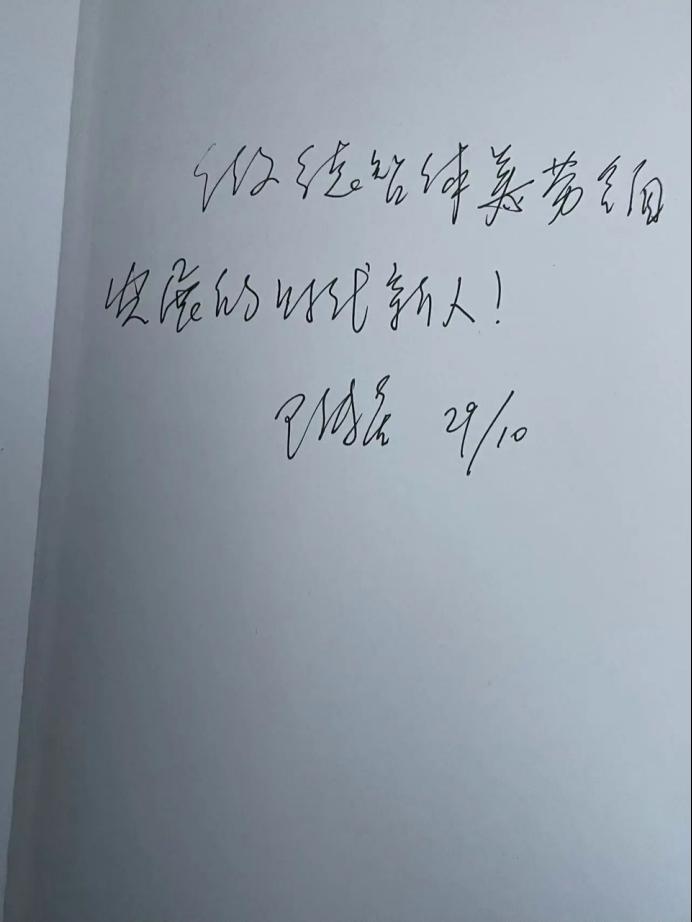 做德智体美劳全面
发展的时代新人！
29/10